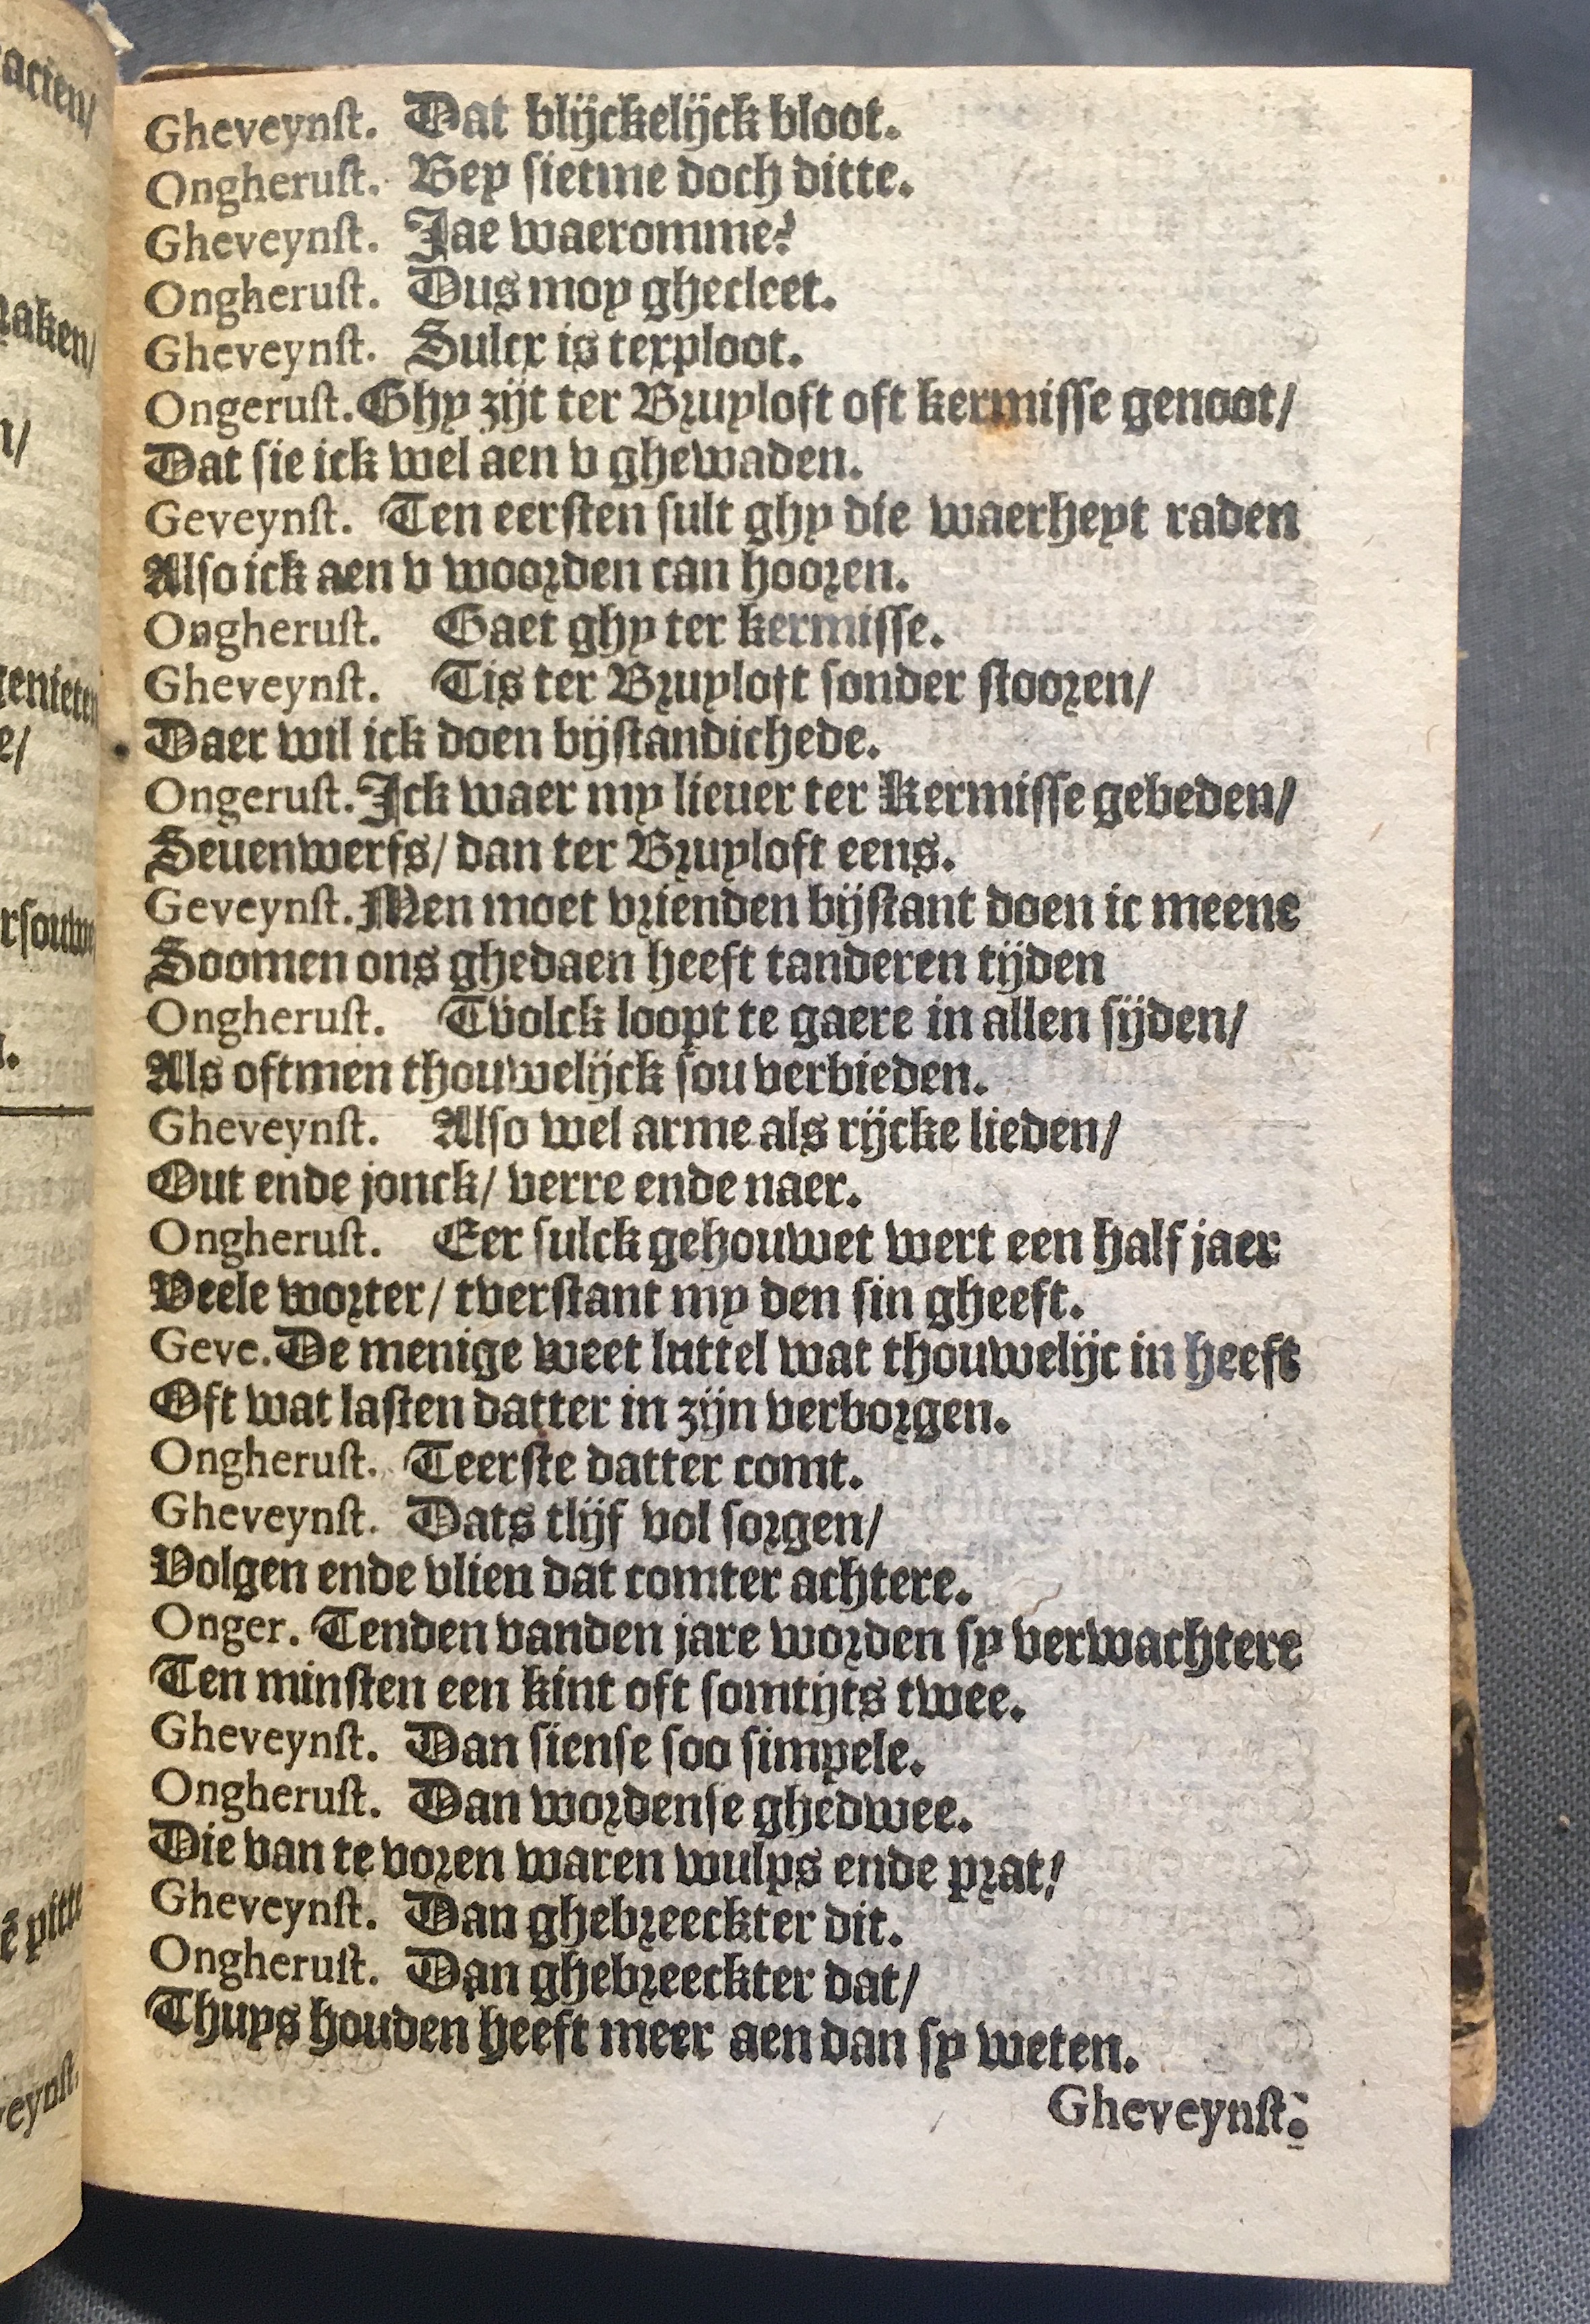 Gheveynst. Dat blijckelijck bloot.
Ongherust. Bey sietme doch ditte.
Gheveynst. Jae waeromme?
Ongherust. Dus moy ghecleet.
Gheveynst. Sulcx is texploot.
Ongerust. Ghy zijt ter Bruyloft oft kermisse genoot/
Dat sie ick wel aen v ghewaden.
Geveynst. Ten eersten sult ghy die waerheyt raden
Also ick aen v woorden can hooren.
Ongherust. Gaet ghy ter kermisse.
Gheveynst. Tis ter Bruyloft sonder stooren/
Daer wil ick doen bijstandichede.
Ongerust. Ick waer my lieuer ter Kermisse gebeden/
Seuenwerfs/ dan ter Bruyloft eens.
Geveynst. Men moet vrienden bijstant doen ic meene
Soomen ons ghedaen heeft tanderen tijden
Ongherust. Tvolck loopt te gaere in allen sijden/
Als oftmen thouwelijck sou verbieden.
Gheveynst. Also wel arme als rijcke lieden/
Out ende jonck/ verre ende naer.
Ongherust. Eer sulck gehouwet wert een half jaer
Veele worter/ tverstant my den sin gheeft.
Geve. De menige weet luttel wat thouwelijc in heeft
Oft wat lasten datter in zijn verborgen.
Ongherust. Teerste datter comt.
Gheveynst. Dats tlijf vol sorgen/
Volgen ende vlien dat comter achtere.
Onger. Tenden vanden jare worden sy verwachtere
Ten minsten een kint oft somtijts twee.
Gheveynst. Dan siense soo simpele.
Ongherust. Dan wordense ghedwee.
Die van te voren waren wulps ende prat/
Gheveynst. Dan ghebreeckter dit.
Ongherust. Dan ghebreeckter dat/
Thuys houden heeft meer aen dan sy weten.
Gheveynst.